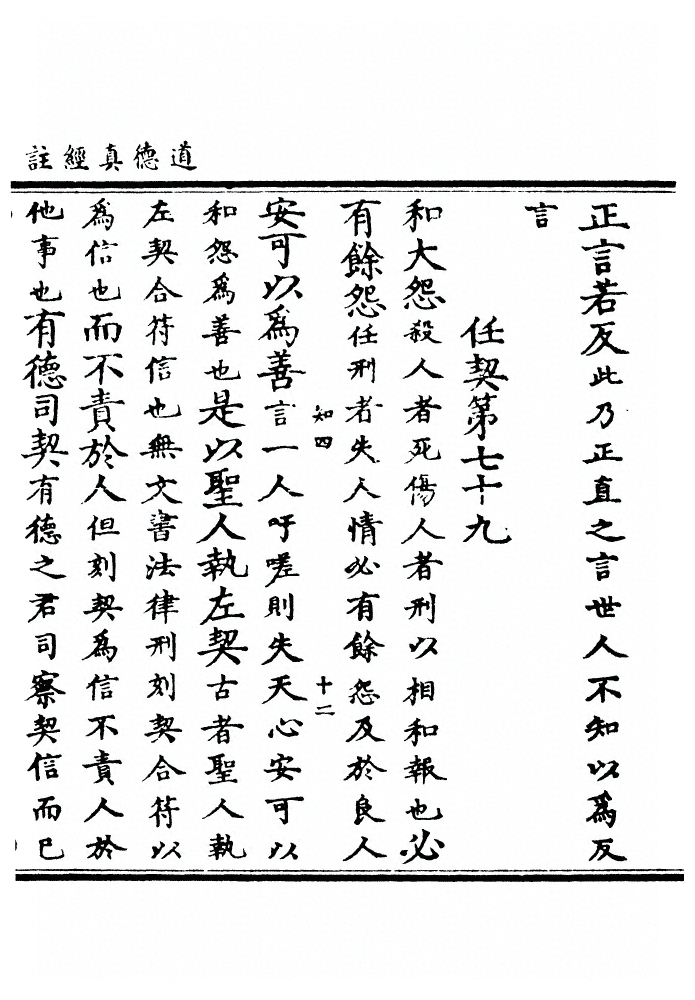 道德真經註
正言若反此乃正直之言世人不知以爲反
言
任契第七十九
和大怨殺人者死傷人者刑以相和報也必
有餘怨任刑者失人情必有餘怨及於良人
知四
十二
安可以爲善言一人吁嗟則失天心安可以
和怨爲善也是以聖人執左契古者聖人執
左契合符信也無文書法律刑刻契合符以
爲信也而不責於人但刻契爲信不責人於
他事也有德司契有德之君司察契信而已